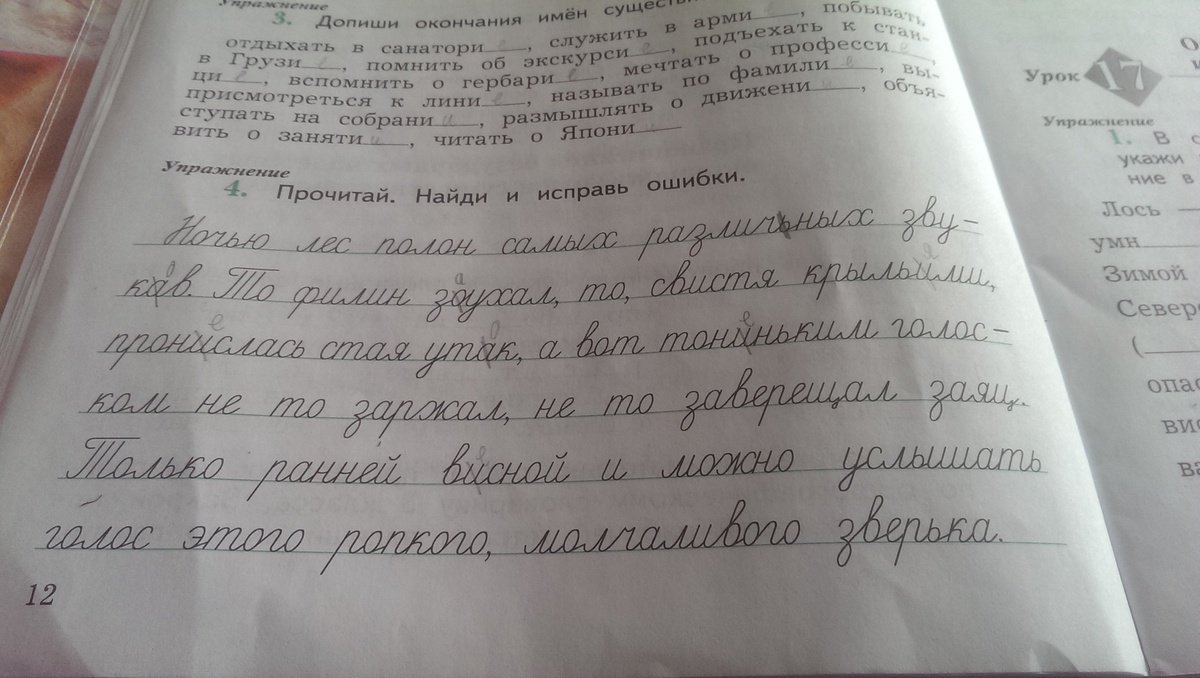 Упражнение
3. Допиши окончания имён
отдыхать в санатори__, служить в арми__, побывать
в Грузи__, помнить об экскурси е, подъехать к стан-
ци__, вспомнить о гербари__, мечтать о професси е,
присмотреться к лини е, называть по фамили е, вы-
ступать на собрани и, размышлять о движени и, объя-
вить о заняти и, читать о Япони и
Упражнение
4. Прочитай. Найди и исправь ошибки.
Ночью лес полон самых различьных зву-
кав. То филин зоухал, то, свистя крыльыми,
пронислась стая утак, а вот тониньким голос-
ком не то заржал, не то заверещал заяц.
Только ранней висной и можно услышать
голос этого ропкого, молчаливого зверька.
12
Урок 17
Упражнение
1. В
укажи
ние в
Лось
умн
Зимой
Север
(
опас